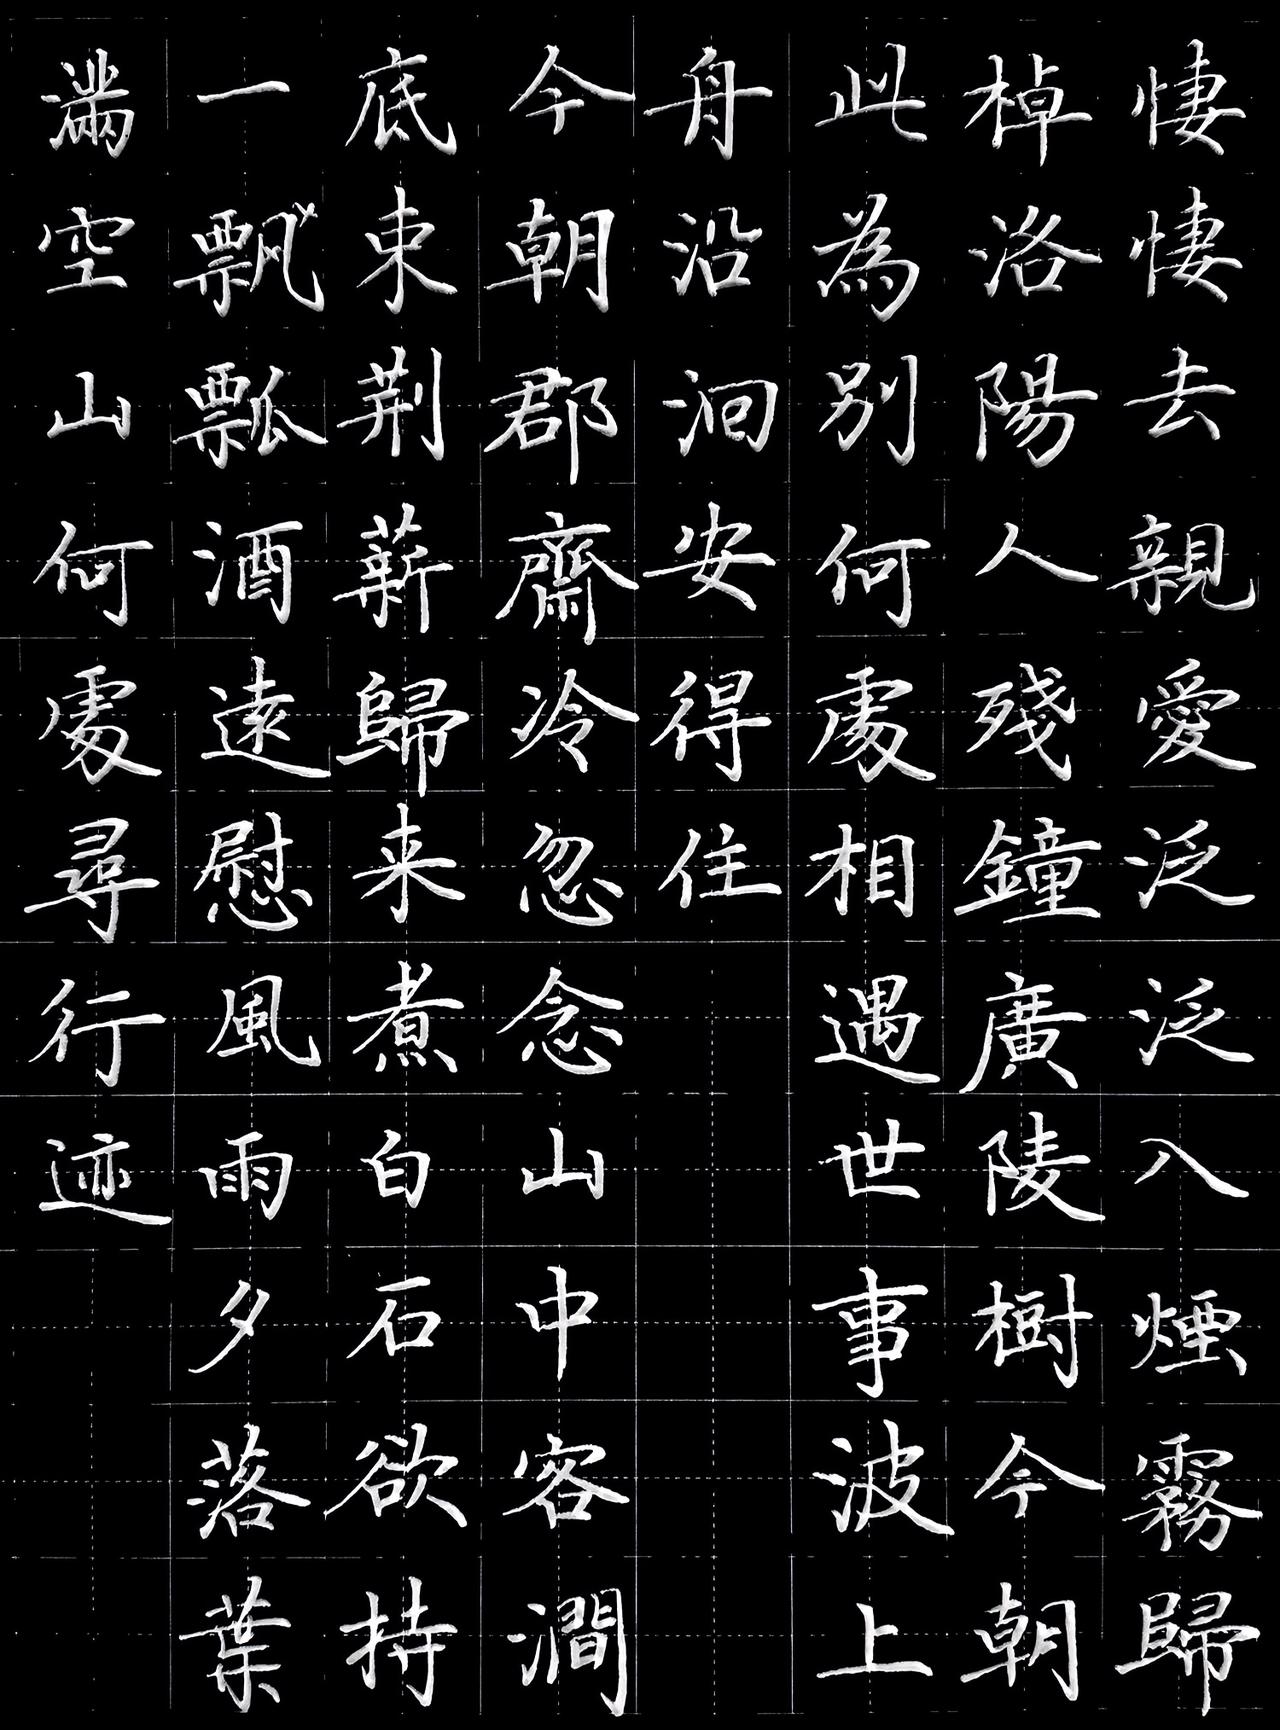 悽悽去親愛泛泛入煙霧歸
棹洛陽人殘鐘廣陵樹今朝
此為別何處相遇世事波上
舟沿洄安得住
今朝郡齋冷忽念山中客澗
底束荊薪歸来煮白石欲持
一飄瓢酒遠慰風雨夕落葉
滿空山何處尋行迹